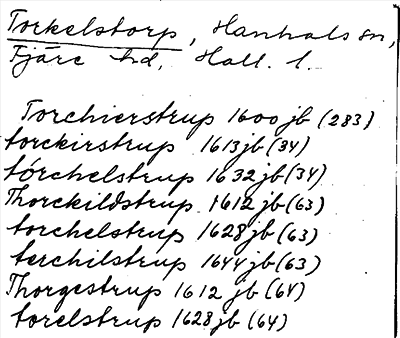 Torkelstorp, Hanhals sn,
Fjäre hd, Hall. l.
Torchierstrup 1600 jb (283)
torckirstrup 1613 jb (34)
törchelstrup 1632 jb (34)
Thorckildstrup 1612 jb (63)
torchelstrup 1628 jb (63)
terchilstrup 1644 jb (63)
Thorgestrup 1612 jb (64)
torelstrup 1628 jb (64)